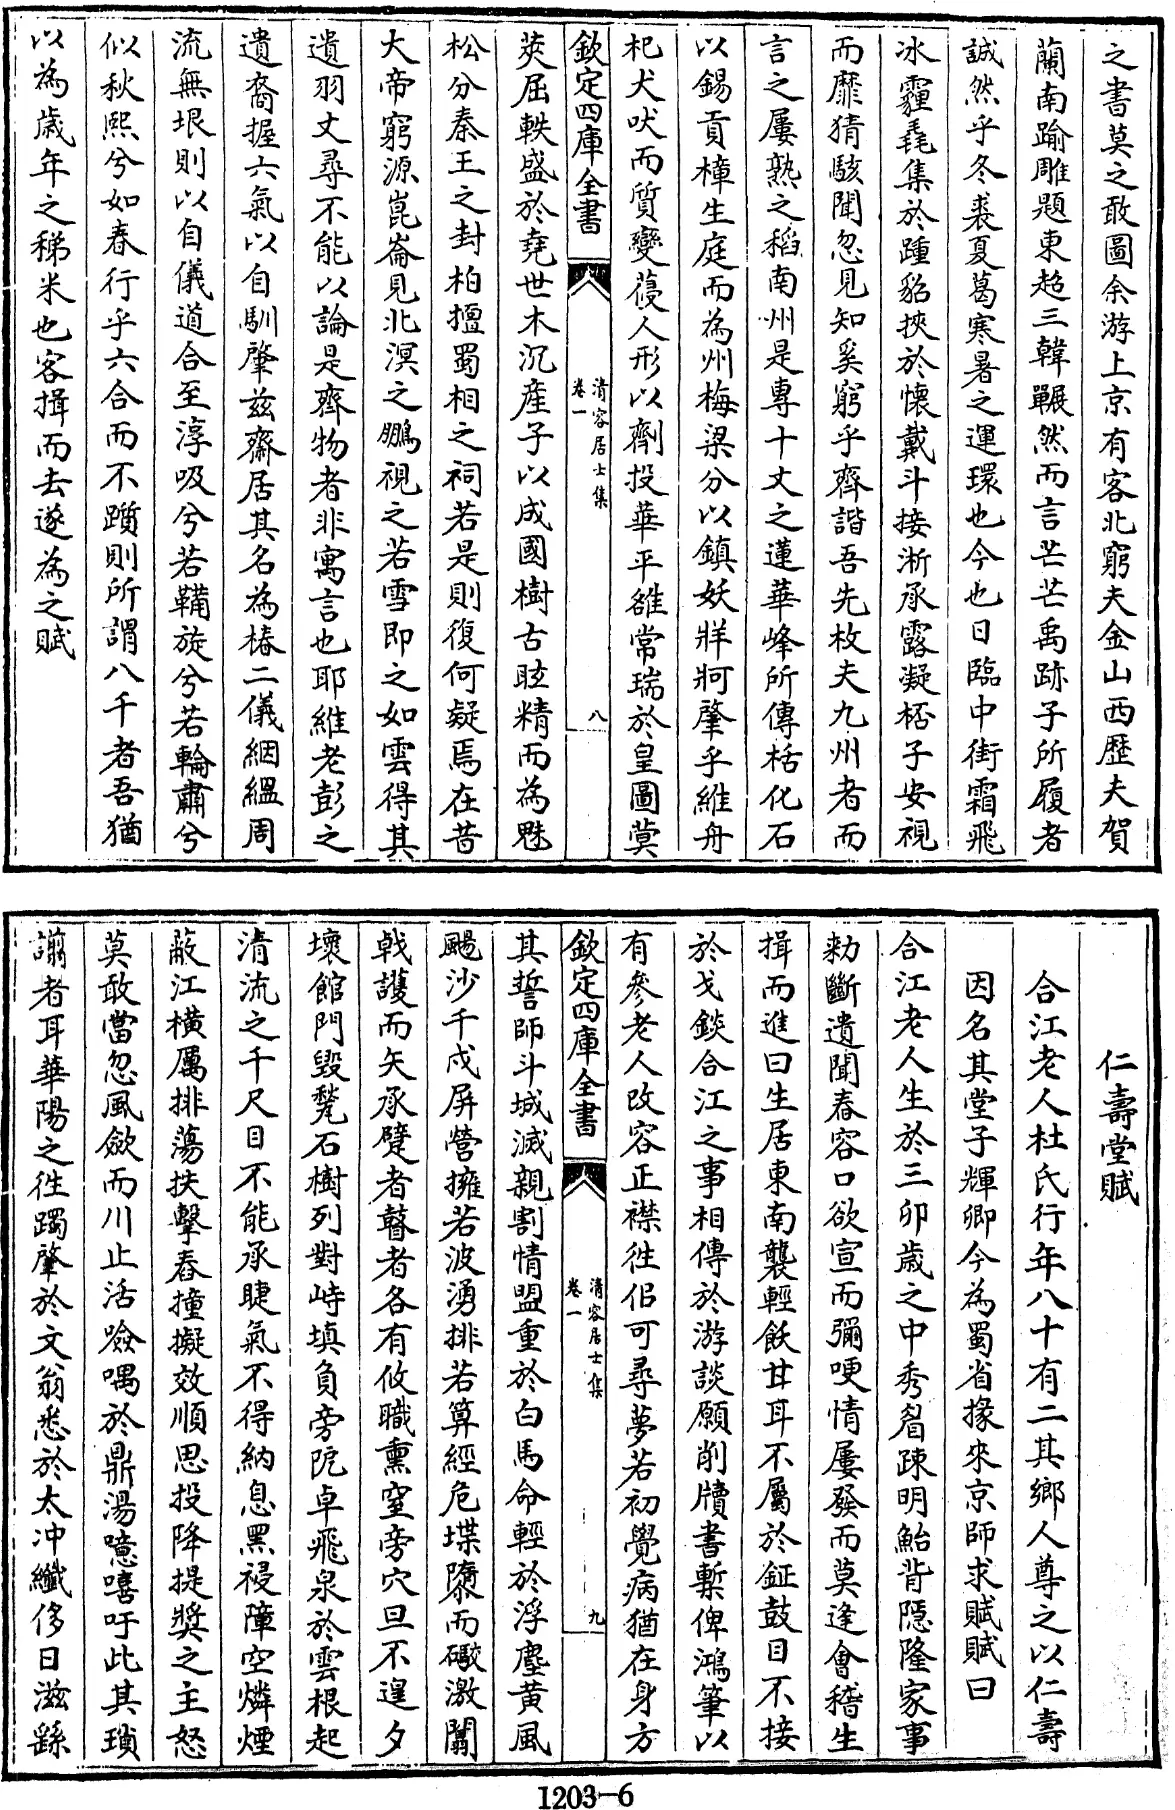 之書莫之敢圖余游上京有客北窮夫金山西歷夫賀
蘭南踰雕題東趍三韓囅然而言芒芒禹跡子所履者
誠然乎冬裘夏葛寒暑之運環也今也日臨中街霜飛
冰霾毳集於踵貂挾於懷戴斗接淅承露凝桮子安視
而靡猜駭聞忽見知奚窮乎齊諧吾先枚夫九州者而
言之屢熟之稻南州是專十丈之蓮華峰所傳栝化石
以錫貢樟生庭而為州梅梁分以鎮妖牂牁肇乎維舟
杞犬吠而質變葠人形以劑投華平雒常瑞於皇圖蓂
欽定四庫全書
清容居士集
卷一
八
莢屈軼盛於堯世木沉産子以成國樹古眩精而為魅
松分秦王之封柏擅蜀相之祠若是則復何疑焉在昔
大帝窮源崑崙見北溟之鵬視之若雪即之如雲得其
遺羽丈尋不能以論是齊物者非寓言也耶維老彭之
遺裔握六氣以自馴肇兹齋居其名為椿二儀絪緼周
流無垠則以自儀道合至淳吸兮若鞴旋兮若輪肅兮
似秋熙兮如春行乎六合而不躓則所謂八千者吾猶
以為歲年之稊米也客揖而去遂為之賦
仁壽堂賦
合江老人杜氏行年八十有二其鄉人尊之以仁壽
因名其堂子輝卿今為蜀省掾來京師求賦賦曰
合江老人生於三卯歲之中秀眉疎明鮐背隱隆家事
勑斷遺聞春容口欲宣而彌哽情屢發而莫逢會稽生
揖而進曰生居東南襲輕飫甘耳不屬於鉦鼓目不接
於戈錟合江之事相傳於游談願削牘書槧俾鴻筆以
有參老人改容正襟徃侣可尋夢若初覺病猶在身方
欽定四庫全書
清容居士集
卷一
九
其誓師斗城滅親割情盟重於白馬命輕於浮塵黄風
颺沙千戍屏營擁若波湧排若算經危堞隳而礮激闒
戟䕶而矢承躄者瞽者各有攸職熏窒旁穴旦不遑夕
壞館門毁甃石樹列對峙填負旁阸卓飛泉於雲根起
清流之千尺目不能承睫氣不得納息黑祲障空燐煙
蔽江横厲排蕩扶擊舂撞擬效順思投降提奬之主怒
莫敢當忽風歛而川止活噞喁於鼎湯噫嘻吁此其瑣
謭者耳華陽之徃躅肇於文翁悉於太冲纖侈日滋繇
1203-6